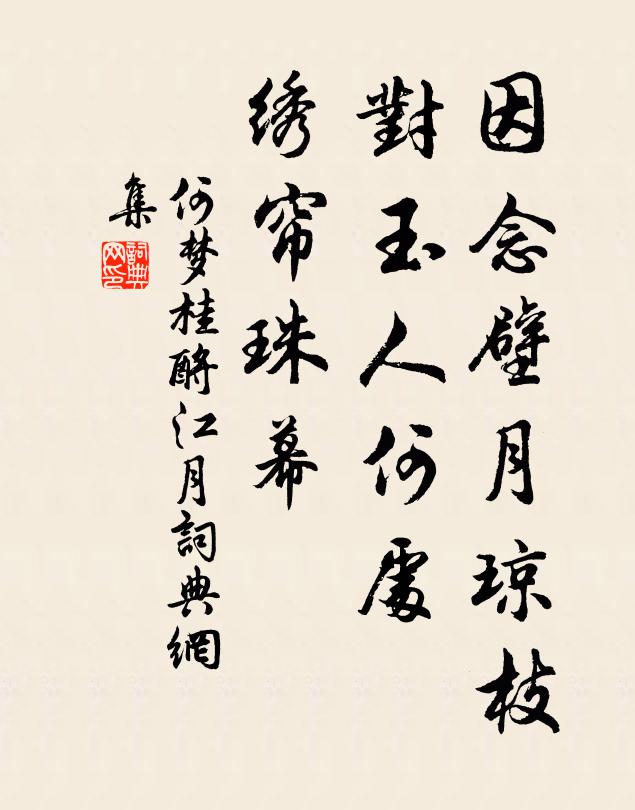 因念璧月琼枝
對玉人何處
绣帘珠幕
何梦桂酹江月詞典網
集
詞典
网印